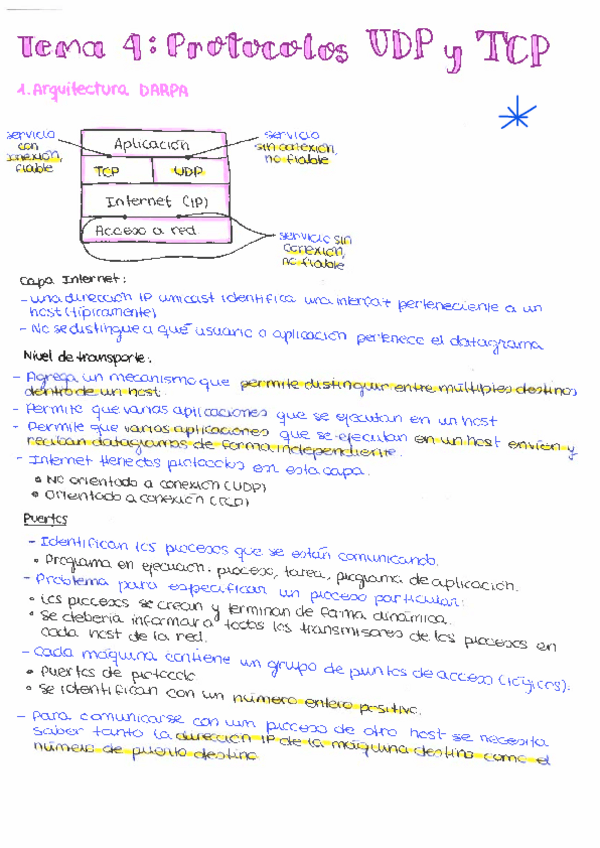 Tema 4: Protocolos UDP y TCP
1. Arquitectura DARPA
servicio
con
conexión,
fiable
Aplicación
TCP
UDP
Internet (IP)
Acceso a red
servicio
sin conexión,
no fiable
servicio sin
conexión,
no fiable
Capa Internet:
- una dirección IP unicast identifica una interfaz perteneciente a un
host (típicamente)
- No se distingue a qué usuario o aplicación pertenece el datagrama
Nivel de transporte:
- Agrega un mecanismo que permite distinguir entre múltiples destinos
dentro de un host.
- Permite que varias aplicaciones que se ejecutan en un host
- Permite que varias aplicaciones que se ejecutan en un host envíen y
reciban datagramas de forma independiente.
- Internet tiene dos protocolos en esta capa.
• No orientado a conexión (UDP)
• Orientado a conexión (TCP)
Puertos
- Identifican los procesos que se están comunicando.
• Programa en ejecución: proceso, tarea, programa de aplicación.
- Problema para especificar un proceso particular:
• Los procesos se crean y terminan de forma dinámica.
• Se debería informar a todos los transmisores de los procesos en
cada host de la red.
- Cada máquina contiene un grupo de puntos de acceso (lógicos).
• Puertos de protocolo
• Se identifican con un número entero positivo.
- Para comunicarse con un proceso de otro host se necesita
saber tanto la dirección IP de la máquina destino como el
número de puerto destino